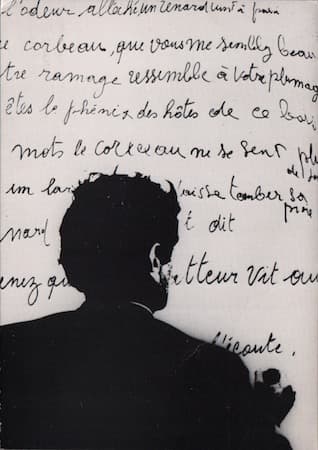 l'odeur alléché un renard vint à
corbeau, que vous me semblez beau
tre ramage ressemble à votre plumag
êtes le phénix des hôtes de ce bois
mots le corbeau ne se sent plu
de
un lar uisse tomber sa
proie
nard t dit
enez qu tteur vit au
l'écoute.